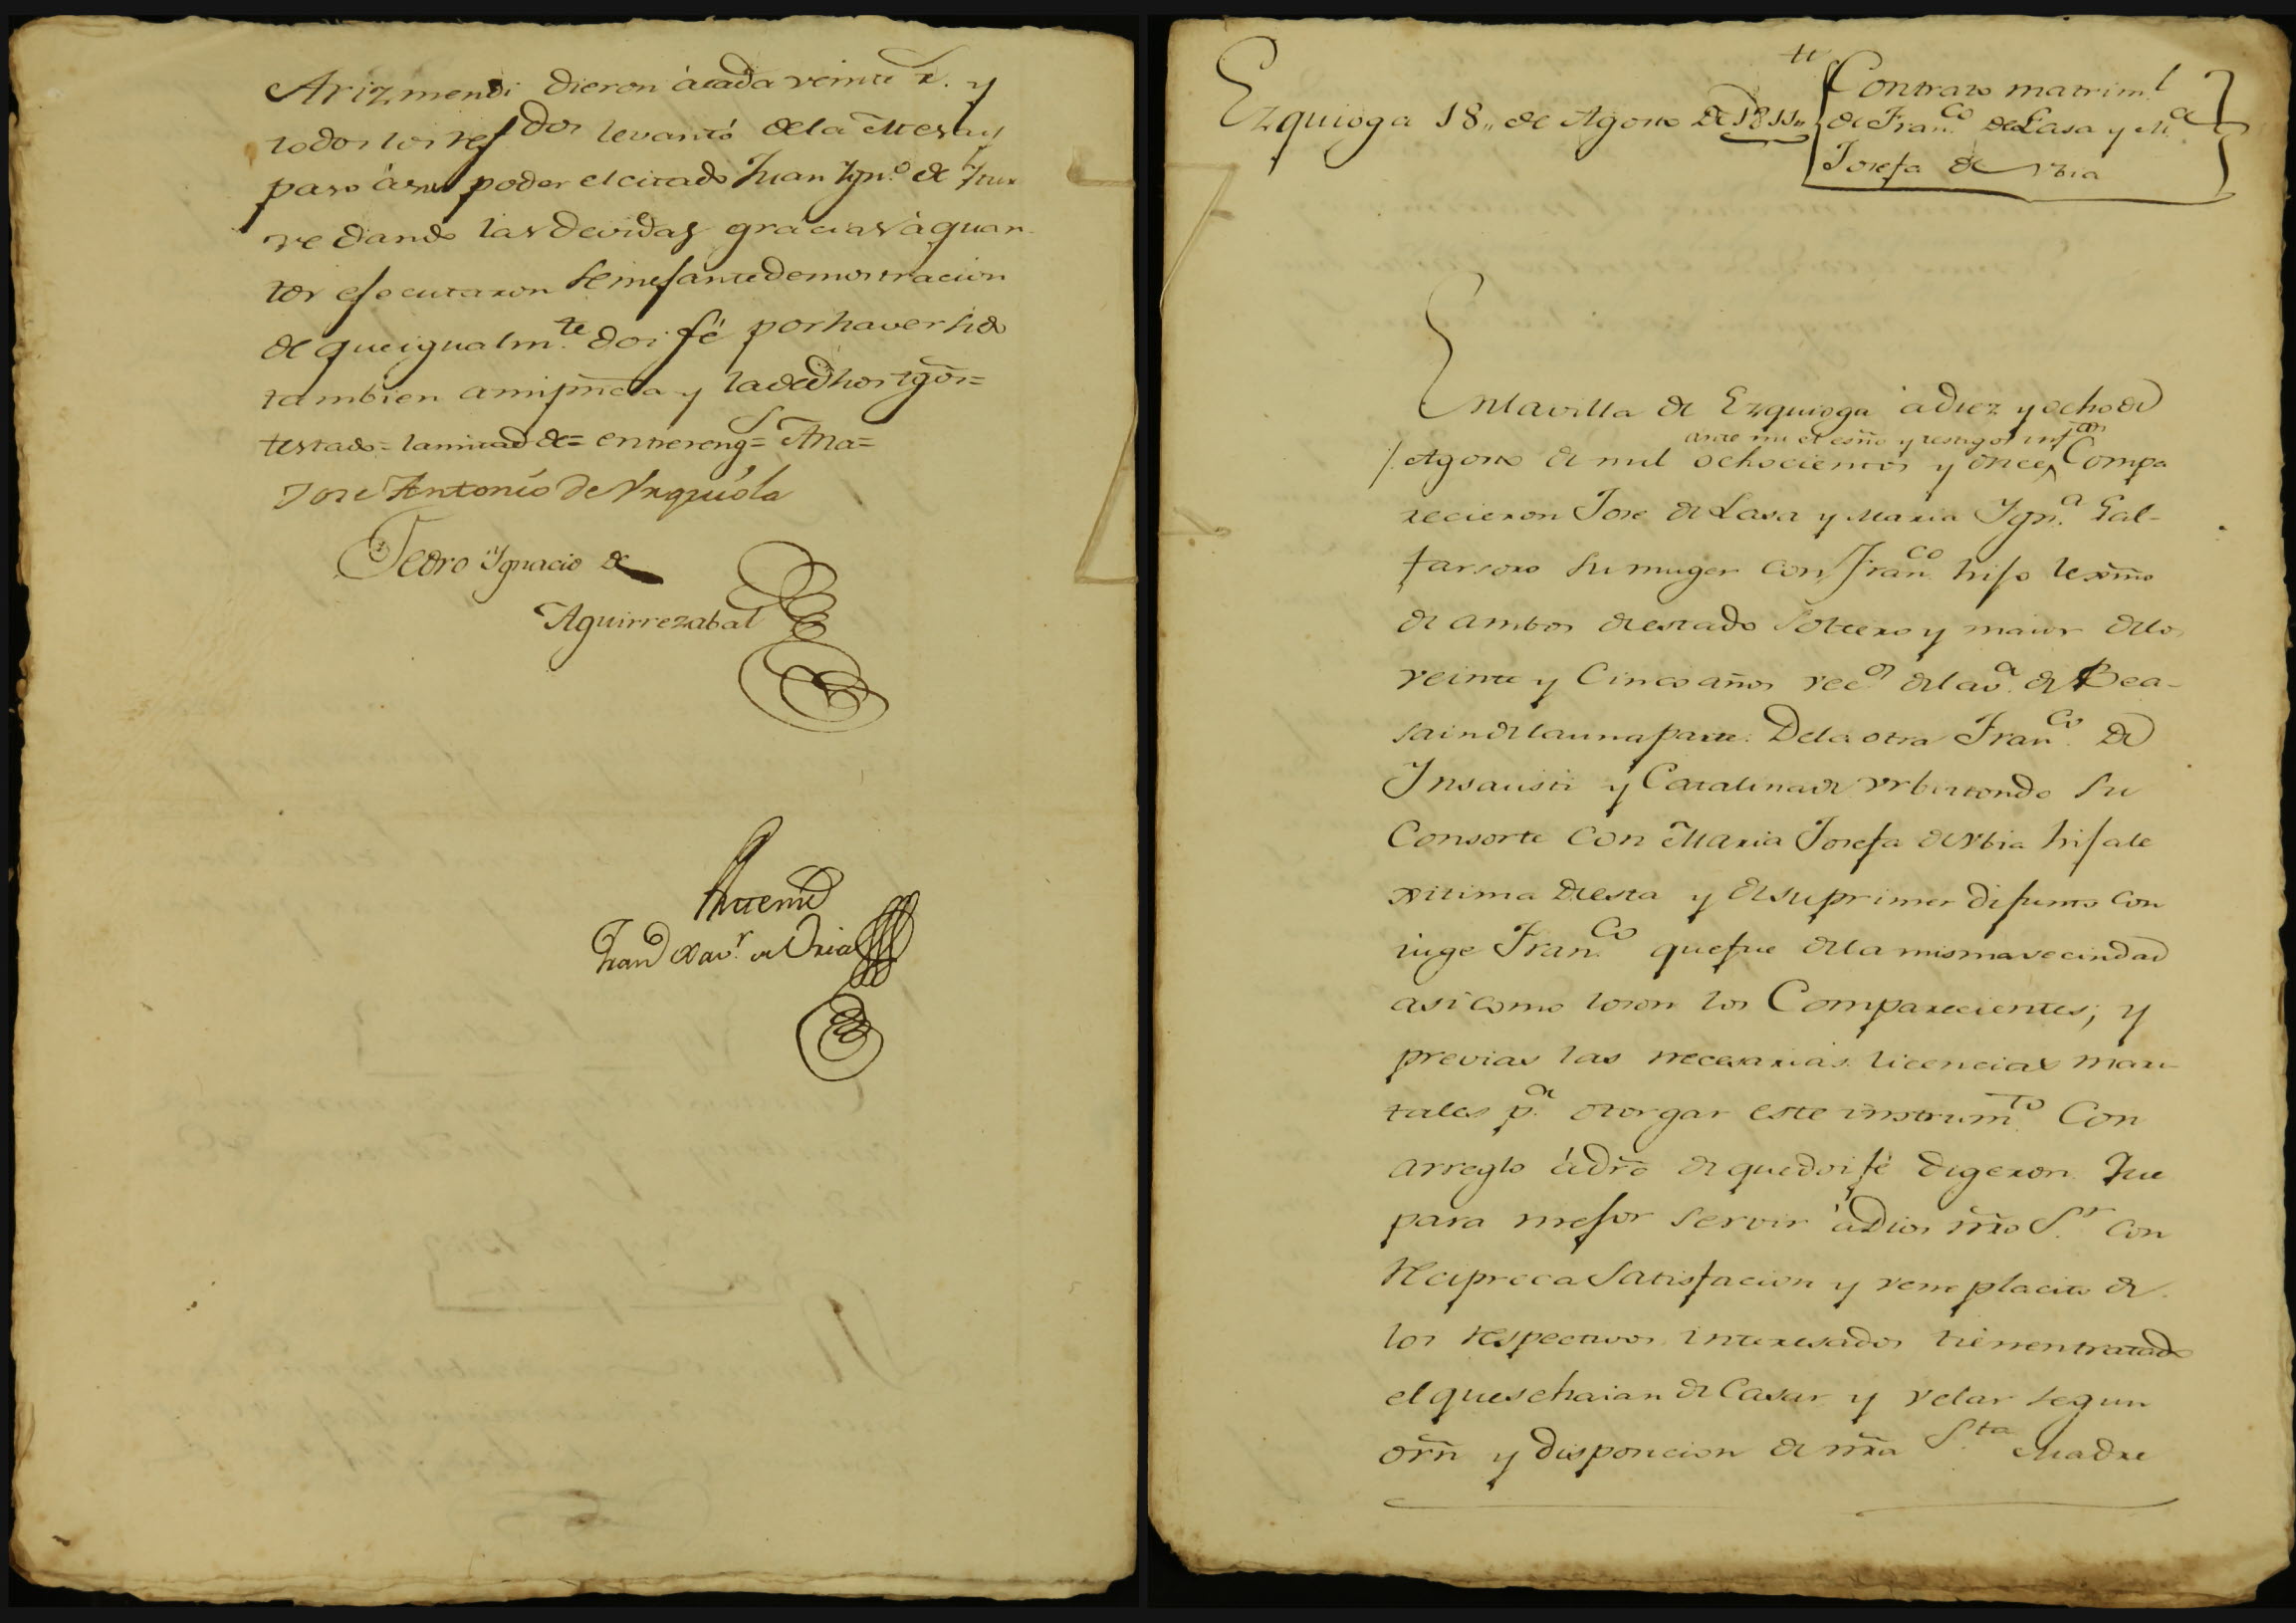 Arizmendi dieron à cada veinte r. y
todos los ref.dos levantó de la Mesa y
paso à su poder el citado Juan Ygn.o de Ytur
re dando las devidas gracias à quan
tos ejecutaron semejante demostracion
de que igualm.te doi fé por haver sido
tambien a mi pñcia y la de dhos tgõs=
testado= la mitad de= entrereng= Ana=
Jose Antonio de Urquiola
Pedro Ygnacio de
Aguirrezabal
Ante mi
Juan Xav.r de Oria
Ezquioga 18,, de Agosto de 1811,,
Contrato matrim.l
de Fran.co de Lasa y M.a
Josefa de Vbia
En la villa de Ezquioga à diez y ocho de
ante mi el esño y testigos infros
Agosto de mil ochocientos y once, Compa
recieron Jose de Lasa y Maria Ygn.a Gal-
farsoro su muger con Fran.co hijo lexmo
de ambos de estado Soltero y maior de los
veinte y Cinco años vec.os de la v.a de Bea-
sain de la una parte. De la otra Fran.co de
Insausti y Catalina de Urbiztondo su
Consorte con Maria Josefa de Vbia hija le
xitima de esta y de su primer difunto con
iuge Fran.co que fue de la misma vecindad
asi como lo son los Comparecientes; y
previas las necesarias licencias mari
tales p.a otorgar este instrum.to Con
arreglo à drõ de que doi fé digeron Que
para mejor servir à Dios ñro S.r con
reciproca Satisfacion y veneplacito de
los respectivos interesados tienen tratado
el que se haian de Casar y velar segun
orñ y disposicion de ñra S.ta Madre